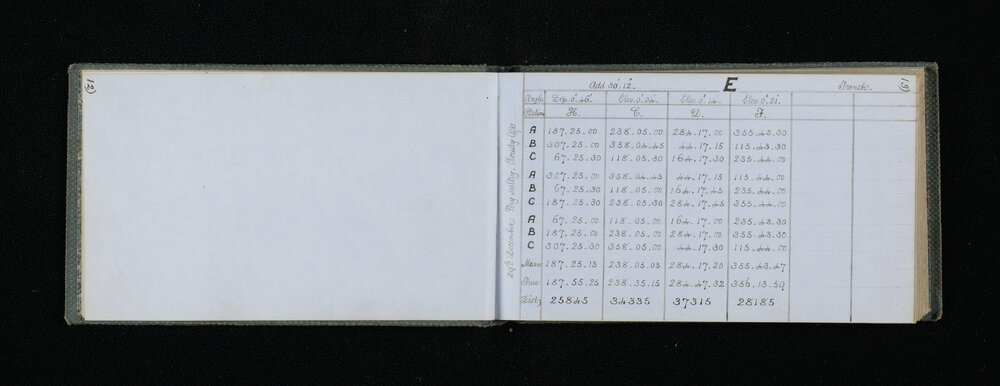 (12)
(13)
Add 30'.12". E Trench.
Angle Dep. 0°.45' Elev. 0°.04' Elev. 0°.14' Elev. 0°.21'
Station H. C. D. F.
A 187.25.00 238.05.00 284.17.00 355.43.30
B 307.25.00 358.04.45 44.17.15 115.43.30
C 67.25.30 118.05.30 164.17.30 235.44.00
A 307.25.00 358.04.45 44.17.15 115.44.00
B 67.25.30 118.05.00 164.17.45 235.44.00
C 187.25.30 238.05.30 284.17.45 355.44.00
A 67.25.00 118.05.00 164.17.00 235.43.30
B 187.25.00 238.05.00 284.17.00 355.43.30
C 307.25.30 358.05.00 44.17.30 115.44.00
Mean 187.25.13 238.05.03 284.17.20 355.43.47
True 187.55.25 238.35.15 284.47.32 356.13.59
Dist 25845 34335 37315 28185
29th December, Very Sultry, Cloudy